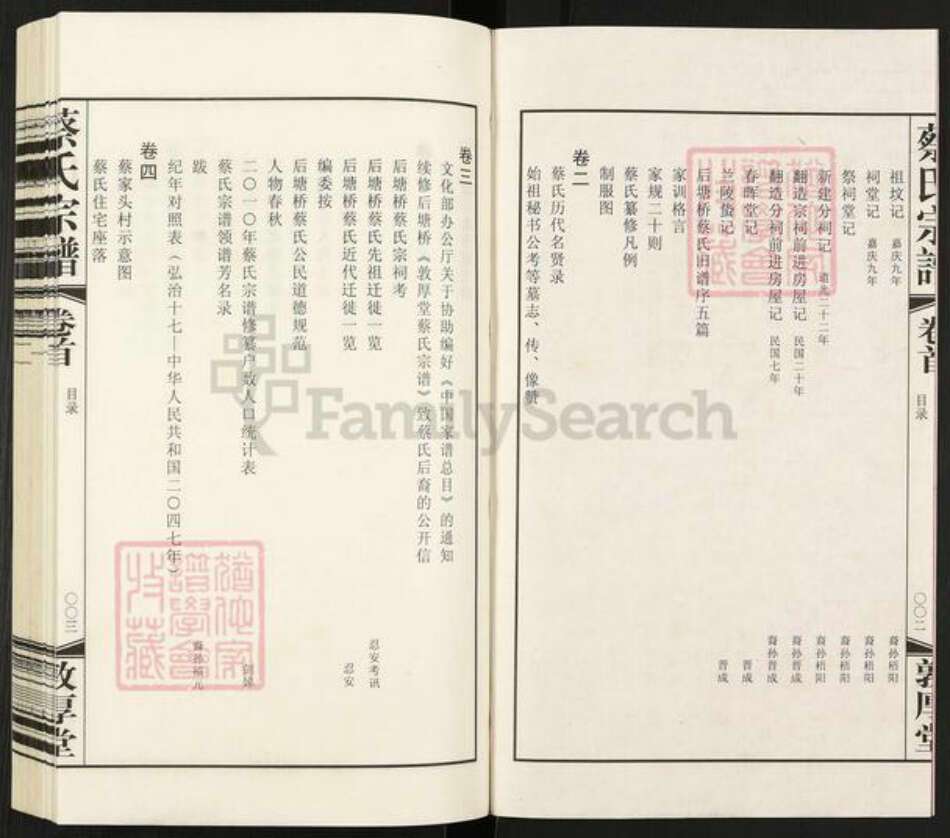 蔡氏宗谱
卷首
目录
〇〇二
敦厚堂
祖坟记 嘉庆九年 裔孙梧阳
祠堂记 嘉庆九年 裔孙梧阳
祭祠堂记 裔孙梧阳
新建分祠记 道光二十二年 裔孙梧阳
翻造宗祠前进房屋记 民国二十年 裔孙晋成
翻造分祠前进房屋记 民国七年 裔孙晋成
春晖堂记 晋成
兰陵蛰记 晋成
后塘桥蔡氏旧谱序五篇
家训格言
家规二十则
蔡氏纂修凡例
制服图
卷二
蔡氏历代名贤录
始祖秘书公考等墓志、传、像赞
卷三
文化部办公厅关于协助编好《中国家谱总目》的通知
续修后塘桥《敦厚堂蔡氏宗谱》致蔡氏后裔的公开信
后塘桥蔡氏宗祠考
后塘桥蔡氏先祖迁徙一览 忍安考讯
后塘桥蔡氏近代迁徙一览 忍安
编委按
后塘桥蔡氏公民道德规范
人物春秋
二〇一〇年蔡氏宗谱修纂户数人口统计表
蔡氏宗谱领谱芳名录
跋
纪年对照表（弘治十七—中华人民共和国二〇四七年）
卷四
蔡家头村示意图
蔡氏住宅座落
蔡氏宗谱
卷首
目录
〇〇三
敦厚堂
FamilySearch